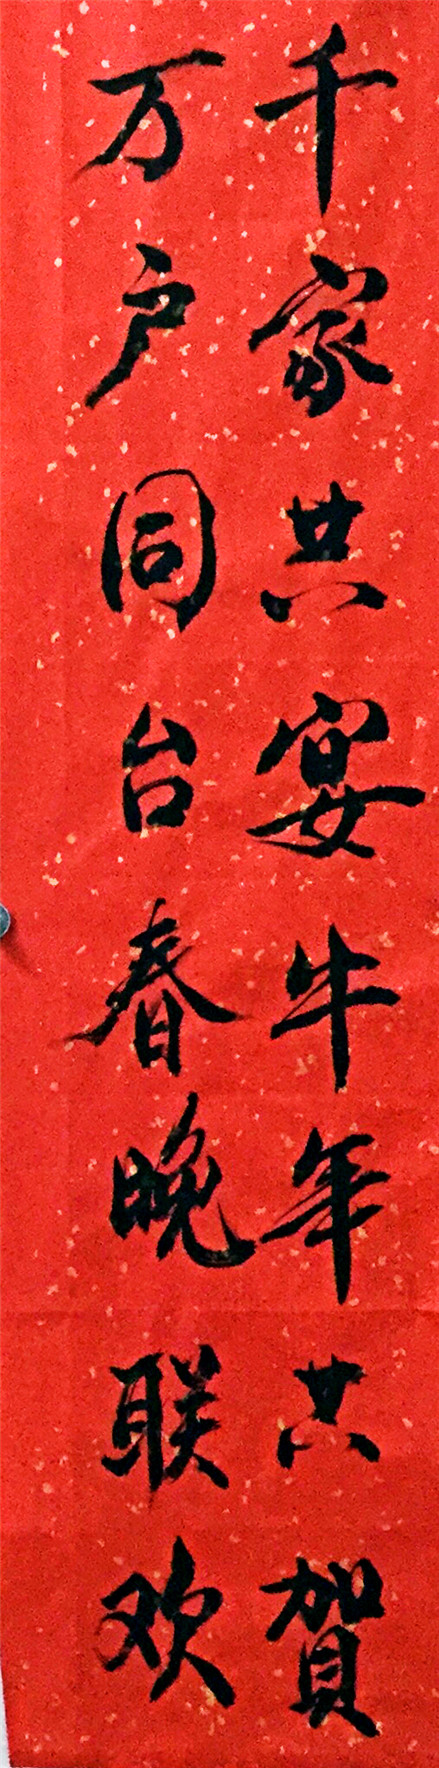 千家共宴牛年共賀
万户同台春晚联欢